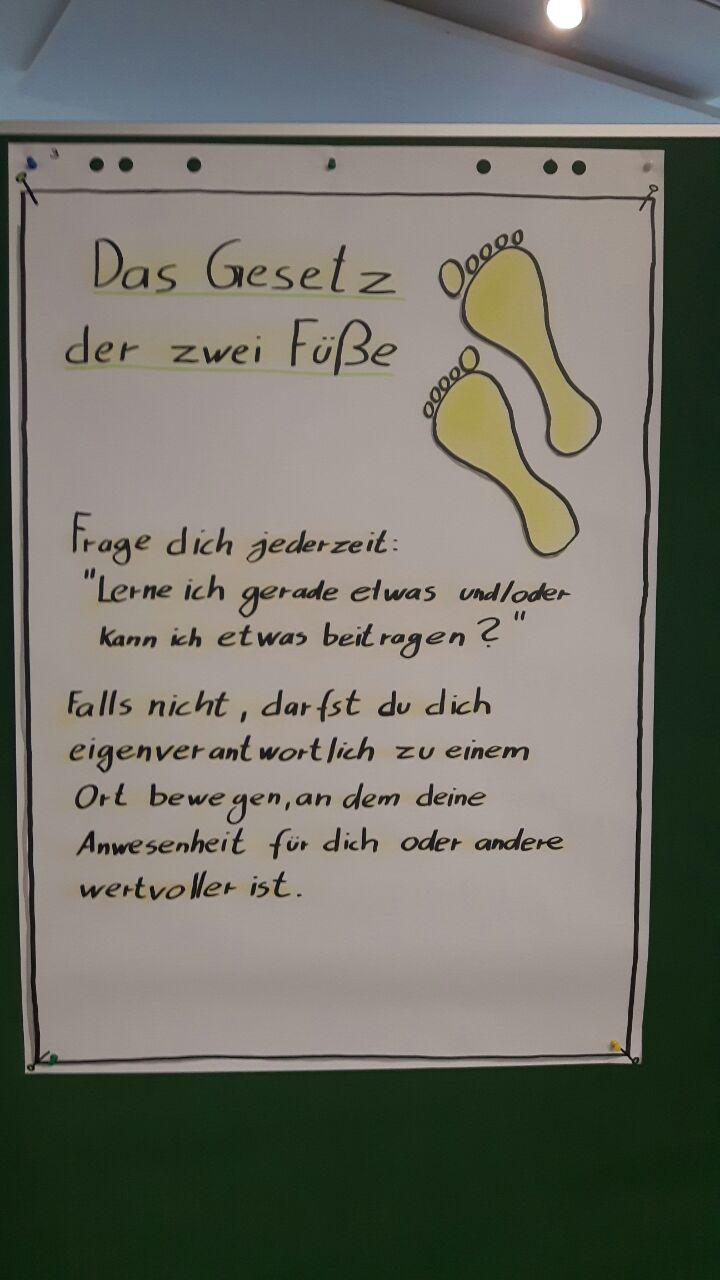 Das Gesetz
der zwei Füße
Frage dich jederzeit:
"Lerne ich gerade etwas und/oder
kann ich etwas beitragen?"
Falls nicht, darfst du dich
eigenverantwortlich zu einem
Ort bewegen, an dem deine
Anwesenheit für dich oder andere
wertvoller ist.